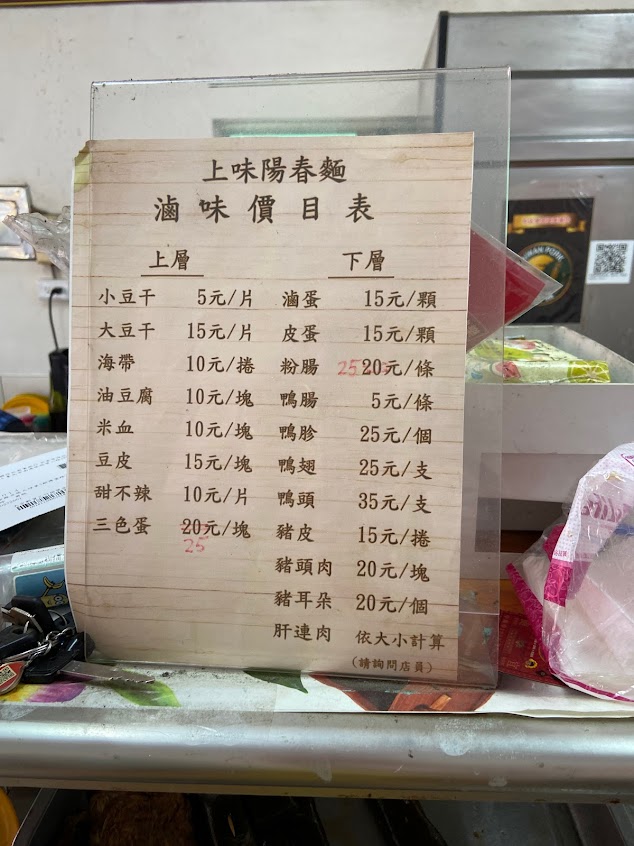 上味陽春麵
滷味價目表
上層
小豆干 5元/片
大豆干 15元/片
海帶 10元/捲
油豆腐 10元/塊
米血 10元/塊
豆皮 15元/塊
甜不辣 10元/片
三色蛋 20元/塊
25
下層
滷蛋 15元/顆
皮蛋 15元/顆
粉腸 25 20元/條
鴨腸 5元/條
鴨胗 25元/個
鴨翅 25元/支
鴨頭 35元/支
豬皮 15元/捲
豬頭肉 20元/塊
豬耳朵 20元/個
肝連肉 依大小計算
(請詢問店員)